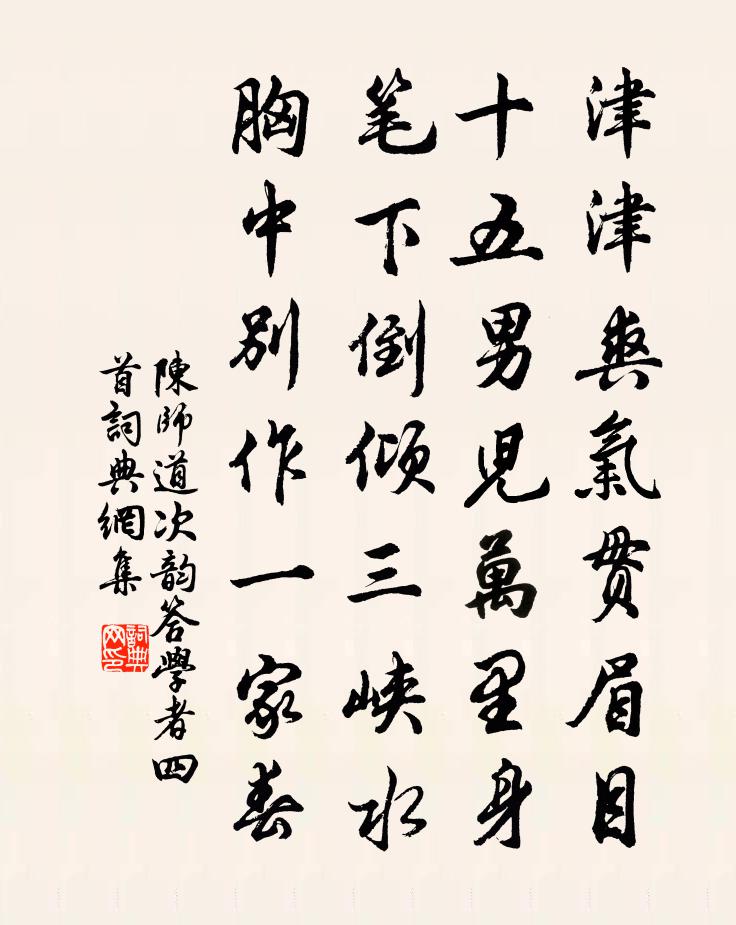 津津爽氣貫眉目
十五男児萬里身
笔下倒傾三峡水
胸中别作一家春
陳師道次韵答學者四
首詞典網集
詞典
网印